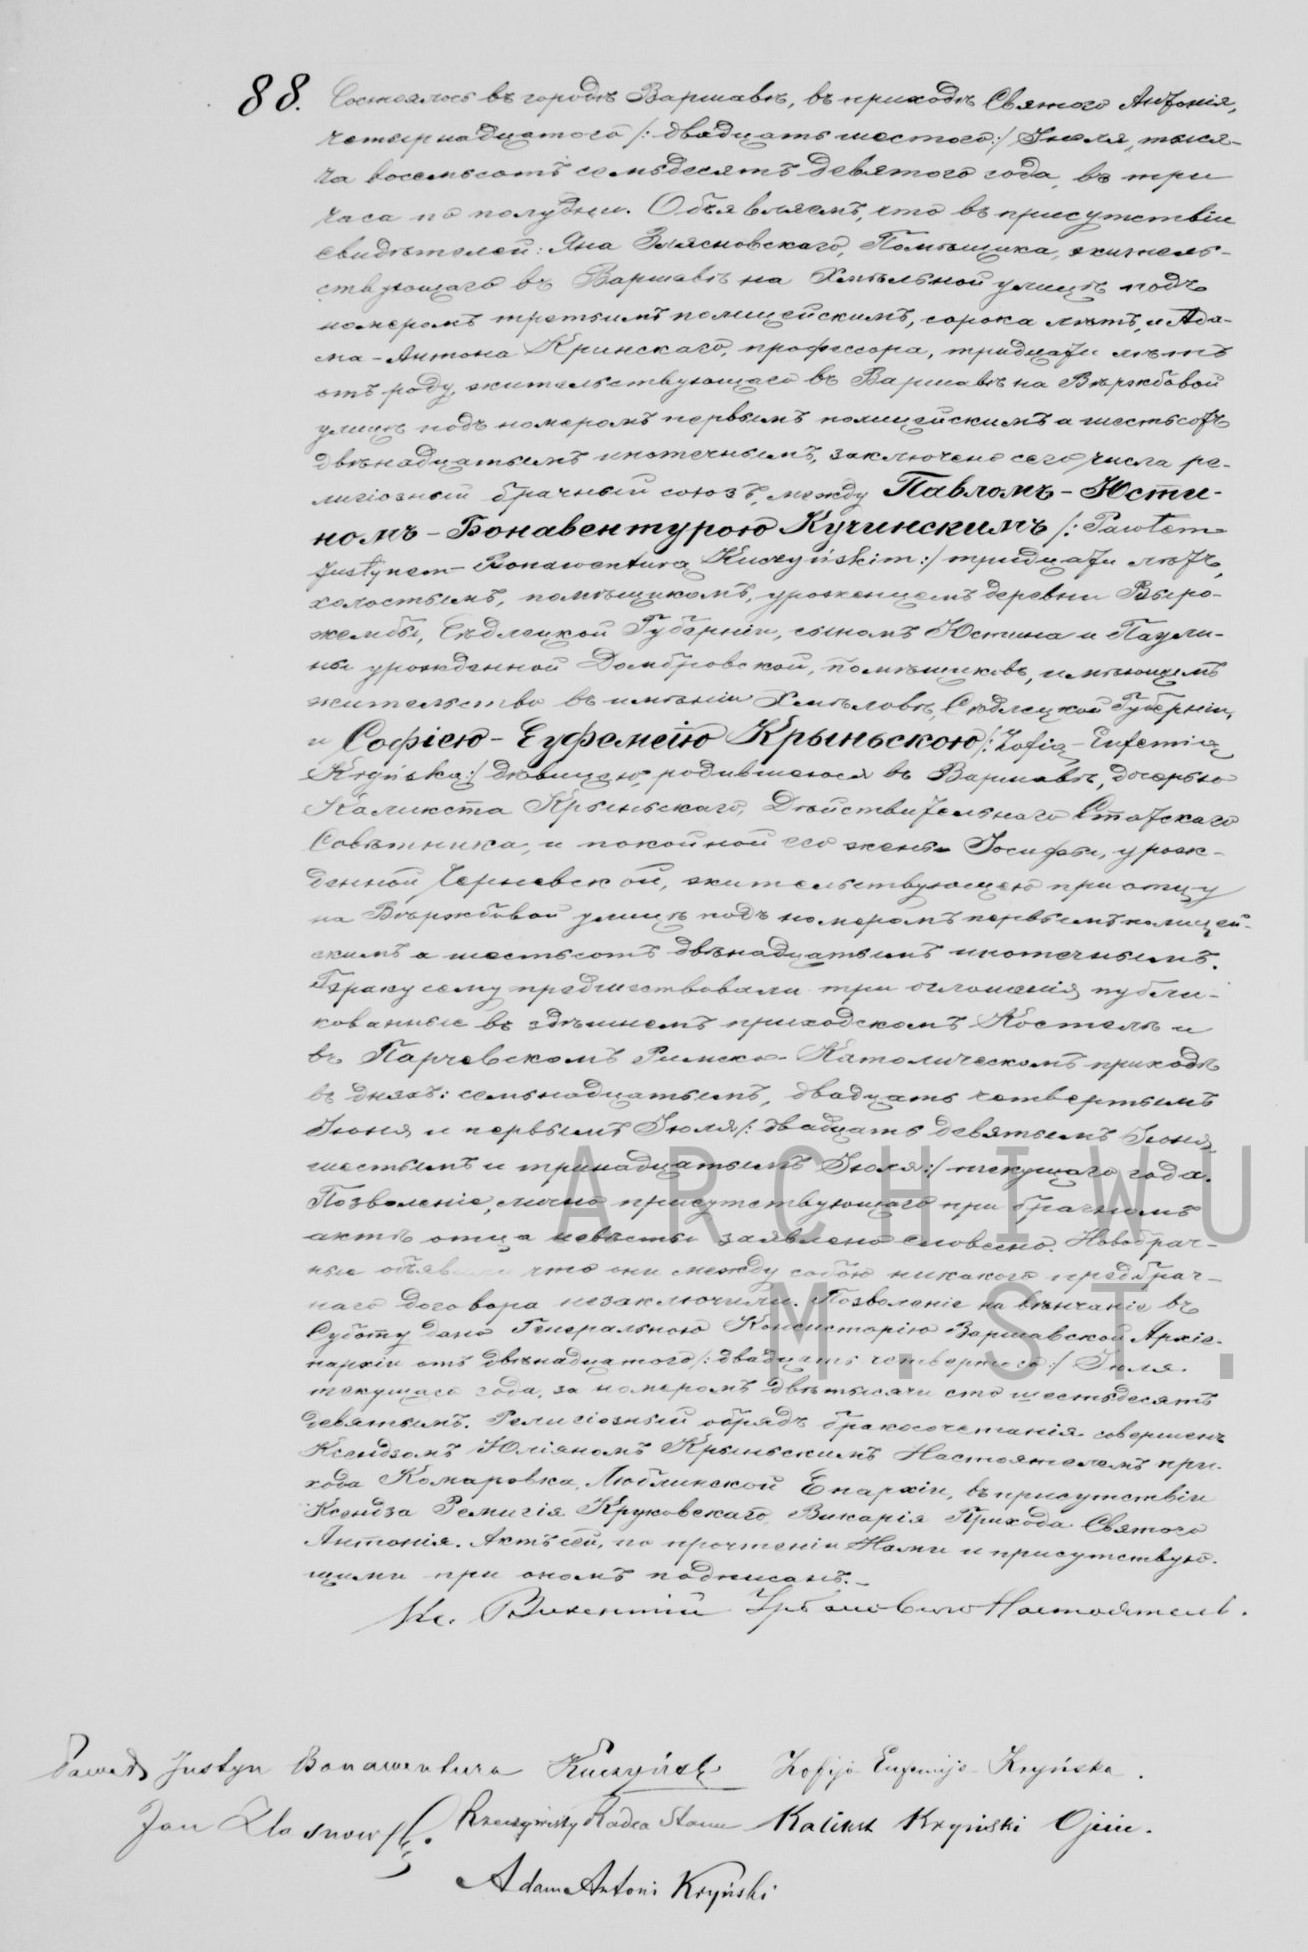 88. Состоялось въ городѣ Варшавѣ, въ приходѣ Святого Антонія,
четырнадцатого /: двадцать шестого :/ Іюля, тыся-
ча восемьсотъ семьдесятъ девятого года, въ три
часа по полудни. Объявляемъ, что въ присутствіи
свидѣтелей: Яна Злясновскаго, Помѣщика, жительс-
ствующаго въ Варшавѣ на Хмѣльной улицѣ подъ
номеромъ третьимъ полицейскимъ, сорока лѣтъ, и Ада-
ма-Антона Крынскаго, профессора, тридцати лѣтъ
отъ роду, жительствующаго въ Варшавѣ на Вержбовой
улицѣ подъ номеромъ первымъ полицейскимъ а шестьсотъ
двѣнадцатымъ ипотечнымъ, заключено сего числа ре-
лигіозный брачный союзъ, между Павломъ-Юсти-
номъ-Бонавентурою Кучинскимъ /: Pawłem
Justynem-Bonawenturą Kuczyńskim :/ тридцати лѣтъ,
холостымъ, помѣщикомъ, уроженцемъ деревни Выро-
жембы, Сѣдлецкой Губерніи, сыномъ Юстина и Паули-
ны урожденной Домбровской, помѣщиковъ, имѣющемъ
жительство въ имѣніи Хмѣловъ, Сѣдлецкой Губерніи,
и Софіею-Еуфеміею Крыньскою /: Zofią-Eufemią
Kryńską :/ дѣвицею, родившеюся въ Варшавѣ, дочерью
Каликста Крыньскаго, Дѣйствительнаго Статскаго
Совѣтника, и покойной его жены Іосифы, урож-
денной Черневской, жительствующею при отцу
на Вержбовой улицѣ подъ номеромъ первымъ полицей-
скимъ а шестьсотъ двѣнадцатымъ ипотечнымъ.
Браку сему предшествовали три оглашенія публи-
кованные въ здѣшнемъ приходскомъ Костелѣ и
въ Парчевскомъ Римско-Католическомъ приходѣ
въ дняхъ: семьнадцатымъ, двадцать четвертымъ
Іюня и первымъ Іюля /: двадцать девятымъ Іюня
шестымъ и тринадцатымъ Іюля :/ текущаго года.
Позволеніе, лично присутствующаго при брачномъ
актѣ отца невѣсты заявлено словесно. Новобрач-
ные что они между собою никакого предбрач-
наго договора незаключили. Позволеніе на вѣнчаніе въ
Субботу дано Генеральною Консисторіею Варшавской Архіе-
пархіи отъ двѣнадцатого /: двадцать четвертого :/ Іюля
текущаго года, за номеромъ двѣ тысячи сто шестьдесятъ
девятымъ. Религіозный обрядъ бракосочетанія совершенъ
Ксендзомъ Юліяномъ Крыньскимъ Настоятелемъ при-
хода Комаровка, Люблинской Епархіи, въ присутствіи
Ксендза Ремигія Кружовскаго, Викарія Прихода Святого
Антонія. Актъ сей, по прочтеніи Нами и присутствую-
щими при ономъ подписанъ.-
Кс. Викентій Настоятель.
Paweł Justyn Bonawentura Kuczyński Zofija Eufemija Kryńska.
Jan Zlasnowski. Rzeczywisty Radca Stanu Kalikst Kryński Ojciec.
Adam Antoni Kryński
ARCHIWU
M.ST.